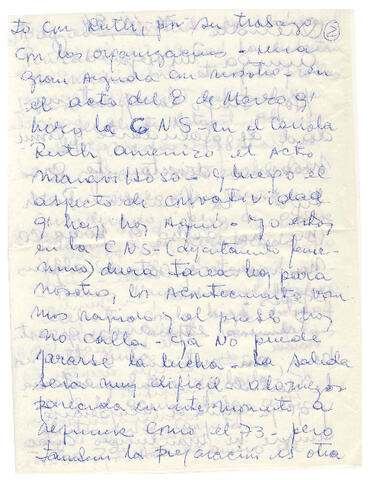 to con Ruth, por su trabajo (2)
con los organizaciones - una
gran ayuda con nosotro - en
el acto del 8 de Marzo q'
hizo la CNS - en el Cariola
Ruth amenizo el Acto
maravilloso - y luego el
aspecto de combatividad
q' hay hoy Aquí - yo estoy
en la CNS -
dura tarea hoy para
nosotro, los Acontecimiento van
mas rapido y el pueblo hoy
no calla - ya NO puede
pararse la lucha - la salida
será muy dificil a lo mejor
parecida en este momento a
como el 73, pero
tambien la preparacion es otra